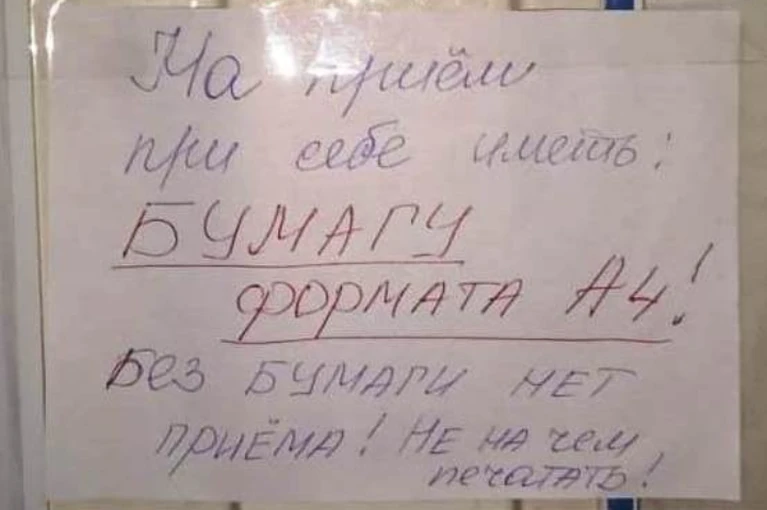 На приём
при себе иметь:
БУМАГУ
ФОРМАТА А4!
Без БУМАГИ НЕТ
ПРИЁМА! НЕ НА чем
печатАТЬ!